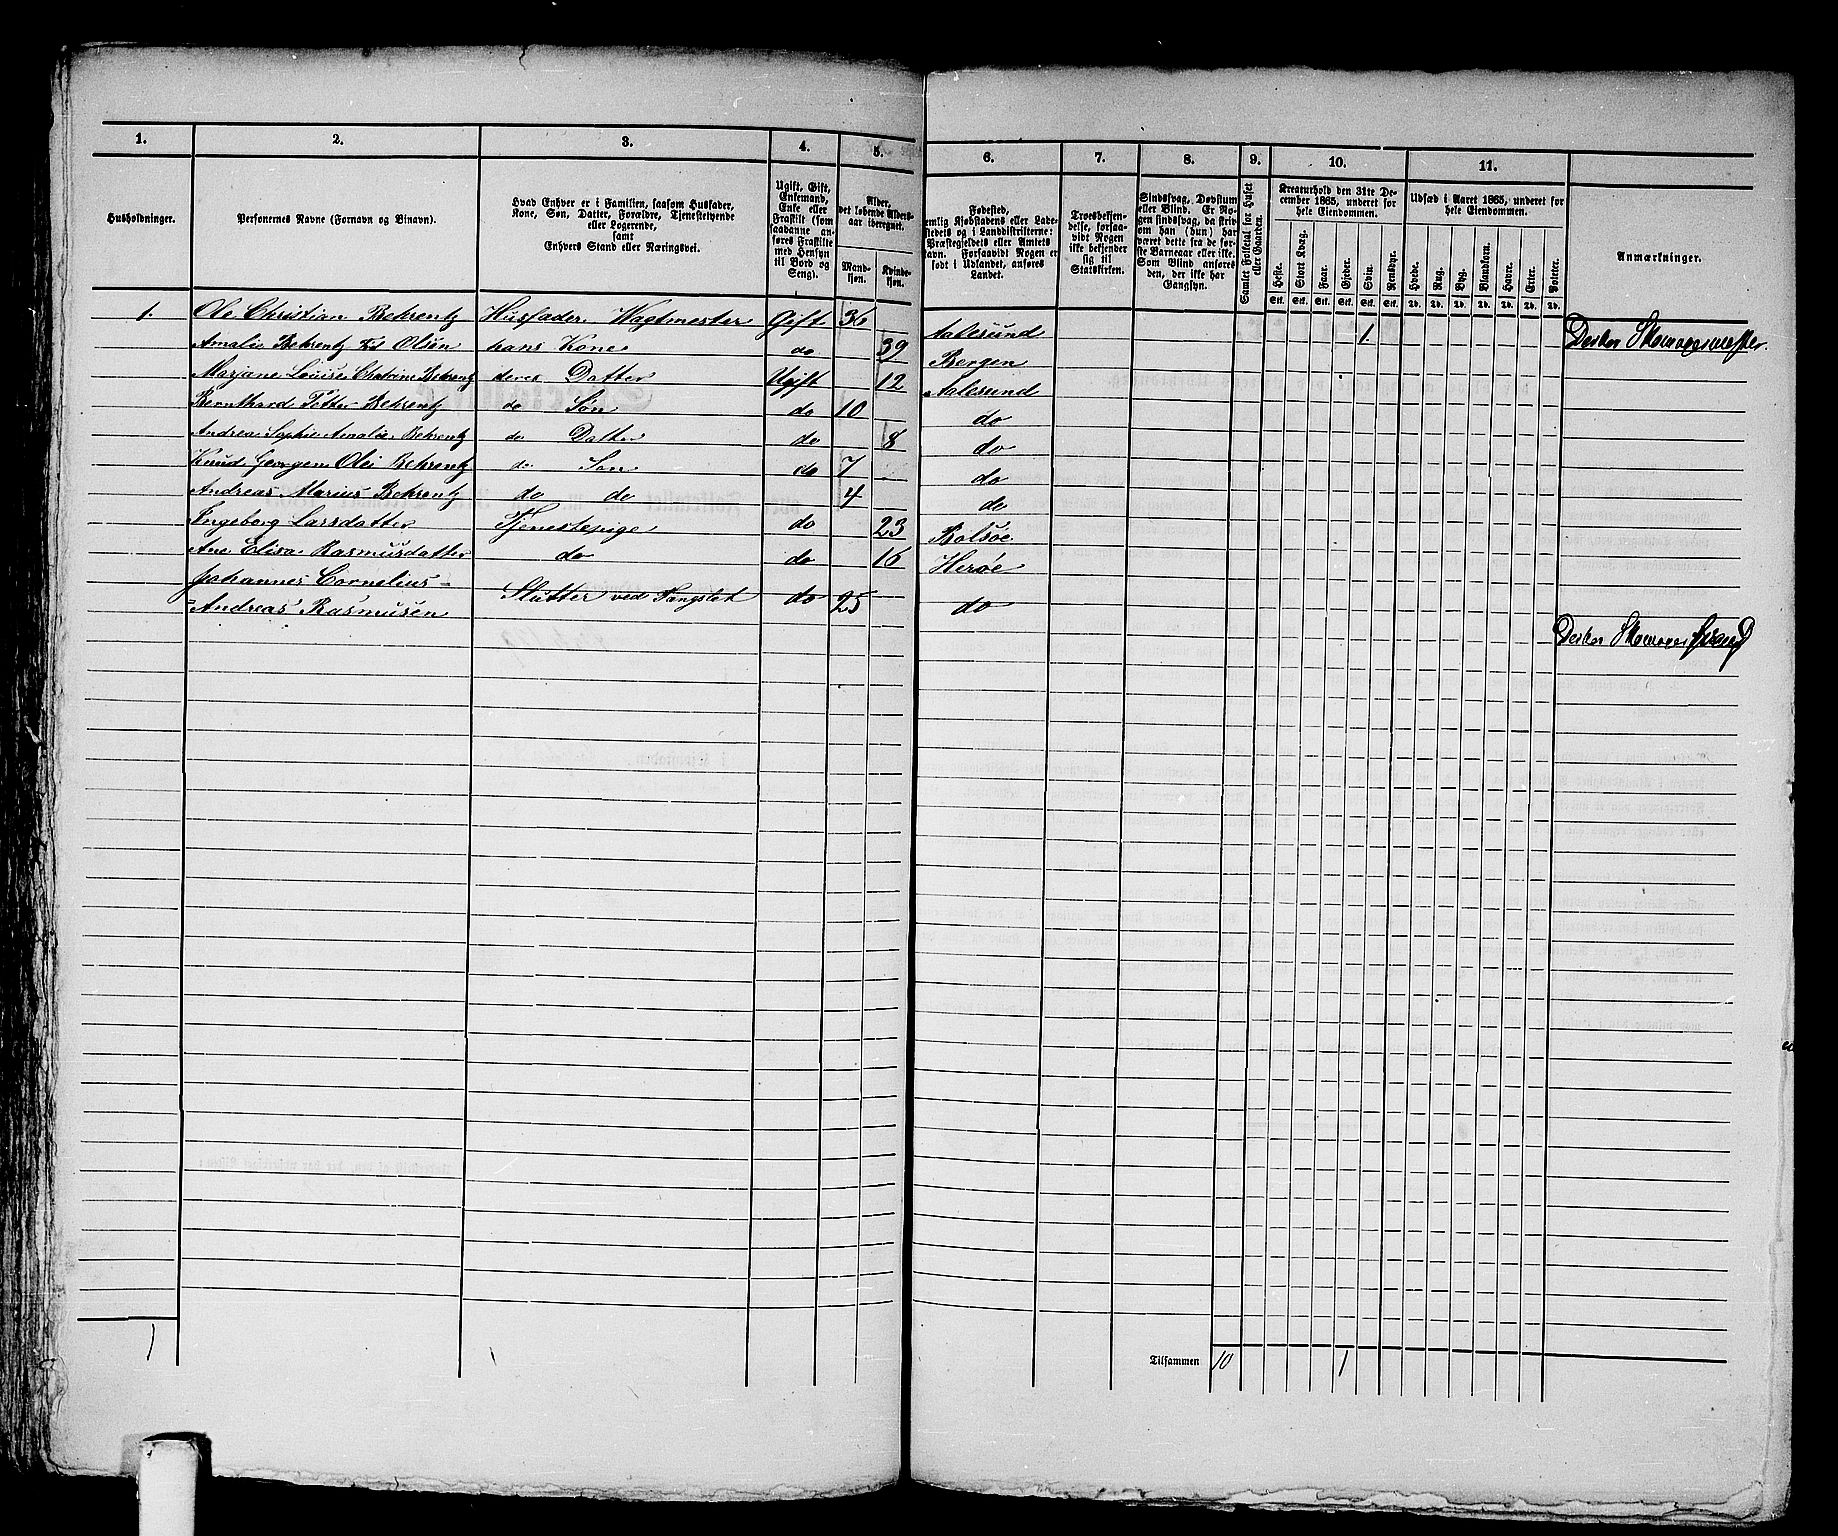 1. 2. 3. 4. 5. 6. 7. 8. 9. 10. 11.
Husholdninger.
Personernes Navne (Fornavn og Binavn).
Hvad Enhver er i Familien, saasom Husfader,
Kone, Søn, Datter, Forældre, Tjenestetyende
eller Logerende,
samt
Enhvers Stand eller Næringsvei.
Ugift, Gift,
Enkemand,
Enke eller
Fraskilt (som
saadanne an-
føres Fraskilte
med Hensyn
til Bord og
Seng).
Alder,
det løbende Alders-
aar iberegnet.
Mand-
kjøn.
Kvinde-
kjøn.
Fødested,
nemlig Kjøbstadens eller Lade-
stedets og i Landdistrikterne:
Præstegjeldets eller Amtets
Navn. Forsaavidt Nogen er
født i Udlandet, anføres
Landet.
Troesbekjen-
delse, forsaa-
vidt Nogen
ikke bekjender
sig til
Statskirken.
Sindssvag, Døvstum
eller Blind. Er No-
gen sindssvag, da skriv
om han (hun) har
været dette fra de før-
ste Barneaar eller ikke.
Som Blind anføres
den, der ikke har
Gangsyn.
Samlet Folketal for Huset
eller Gaarden.
Kreaturhold den 31te De-
cember 1865, underet for
hele Eiendommen.
Heste. Stort Kvæg. Faar. Gjeder. Sviin. Rensdyr.
Stk. Stk. Stk. Stk. Stk. Stk.
Udsæd i Aaret 1865, underet for
hele Eiendommen.
Hvede. Rug. Byg. Blandkorn. Havre. Erter. Poteter.
Td. Td. Td. Td. Td. Td. Td.
Anmærkninger.
1. Ole Christian Behrentz Husfader. Vagtmester Gift 36 Aalesund 1.
Amalie Behrentz Olsen hans Kone do 39 Bergen
Marjane Louise Chatrine Behrentz deres Datter Ugift 12 Aalesund
Bernthard Petter Behrentz do Søn do 10 do
Andrea Sophie Amalie Behrentz do Datter do 8 do
Knud Georgen Olei Behrentz do Søn do 7 do
Andreas Marius Behrentz do do 4 do
Ingeborg Larsdatter Tjenestepige do 23 Bolsøe
Ane Elisa Rasmusdatter do do 16 Herøe
Johannes Cornelius-
=Andreas Rasmusen Slutter ved Fangslet do 25 do
1
Tilsammen 10 1